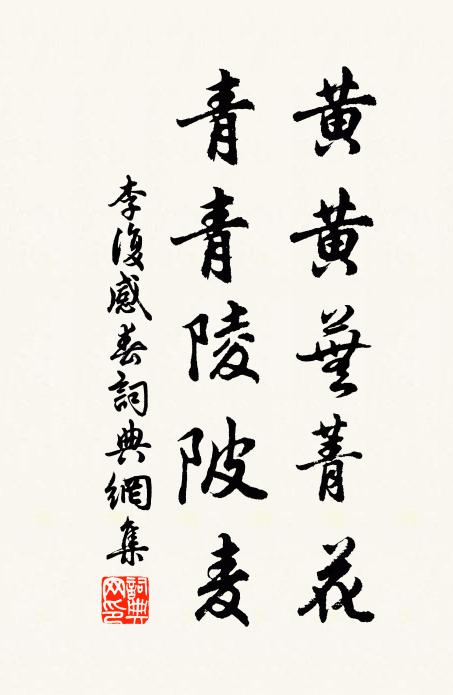 黄黄蕪菁花
青青陵陂麦
李復感春詞典網集
詞典网印